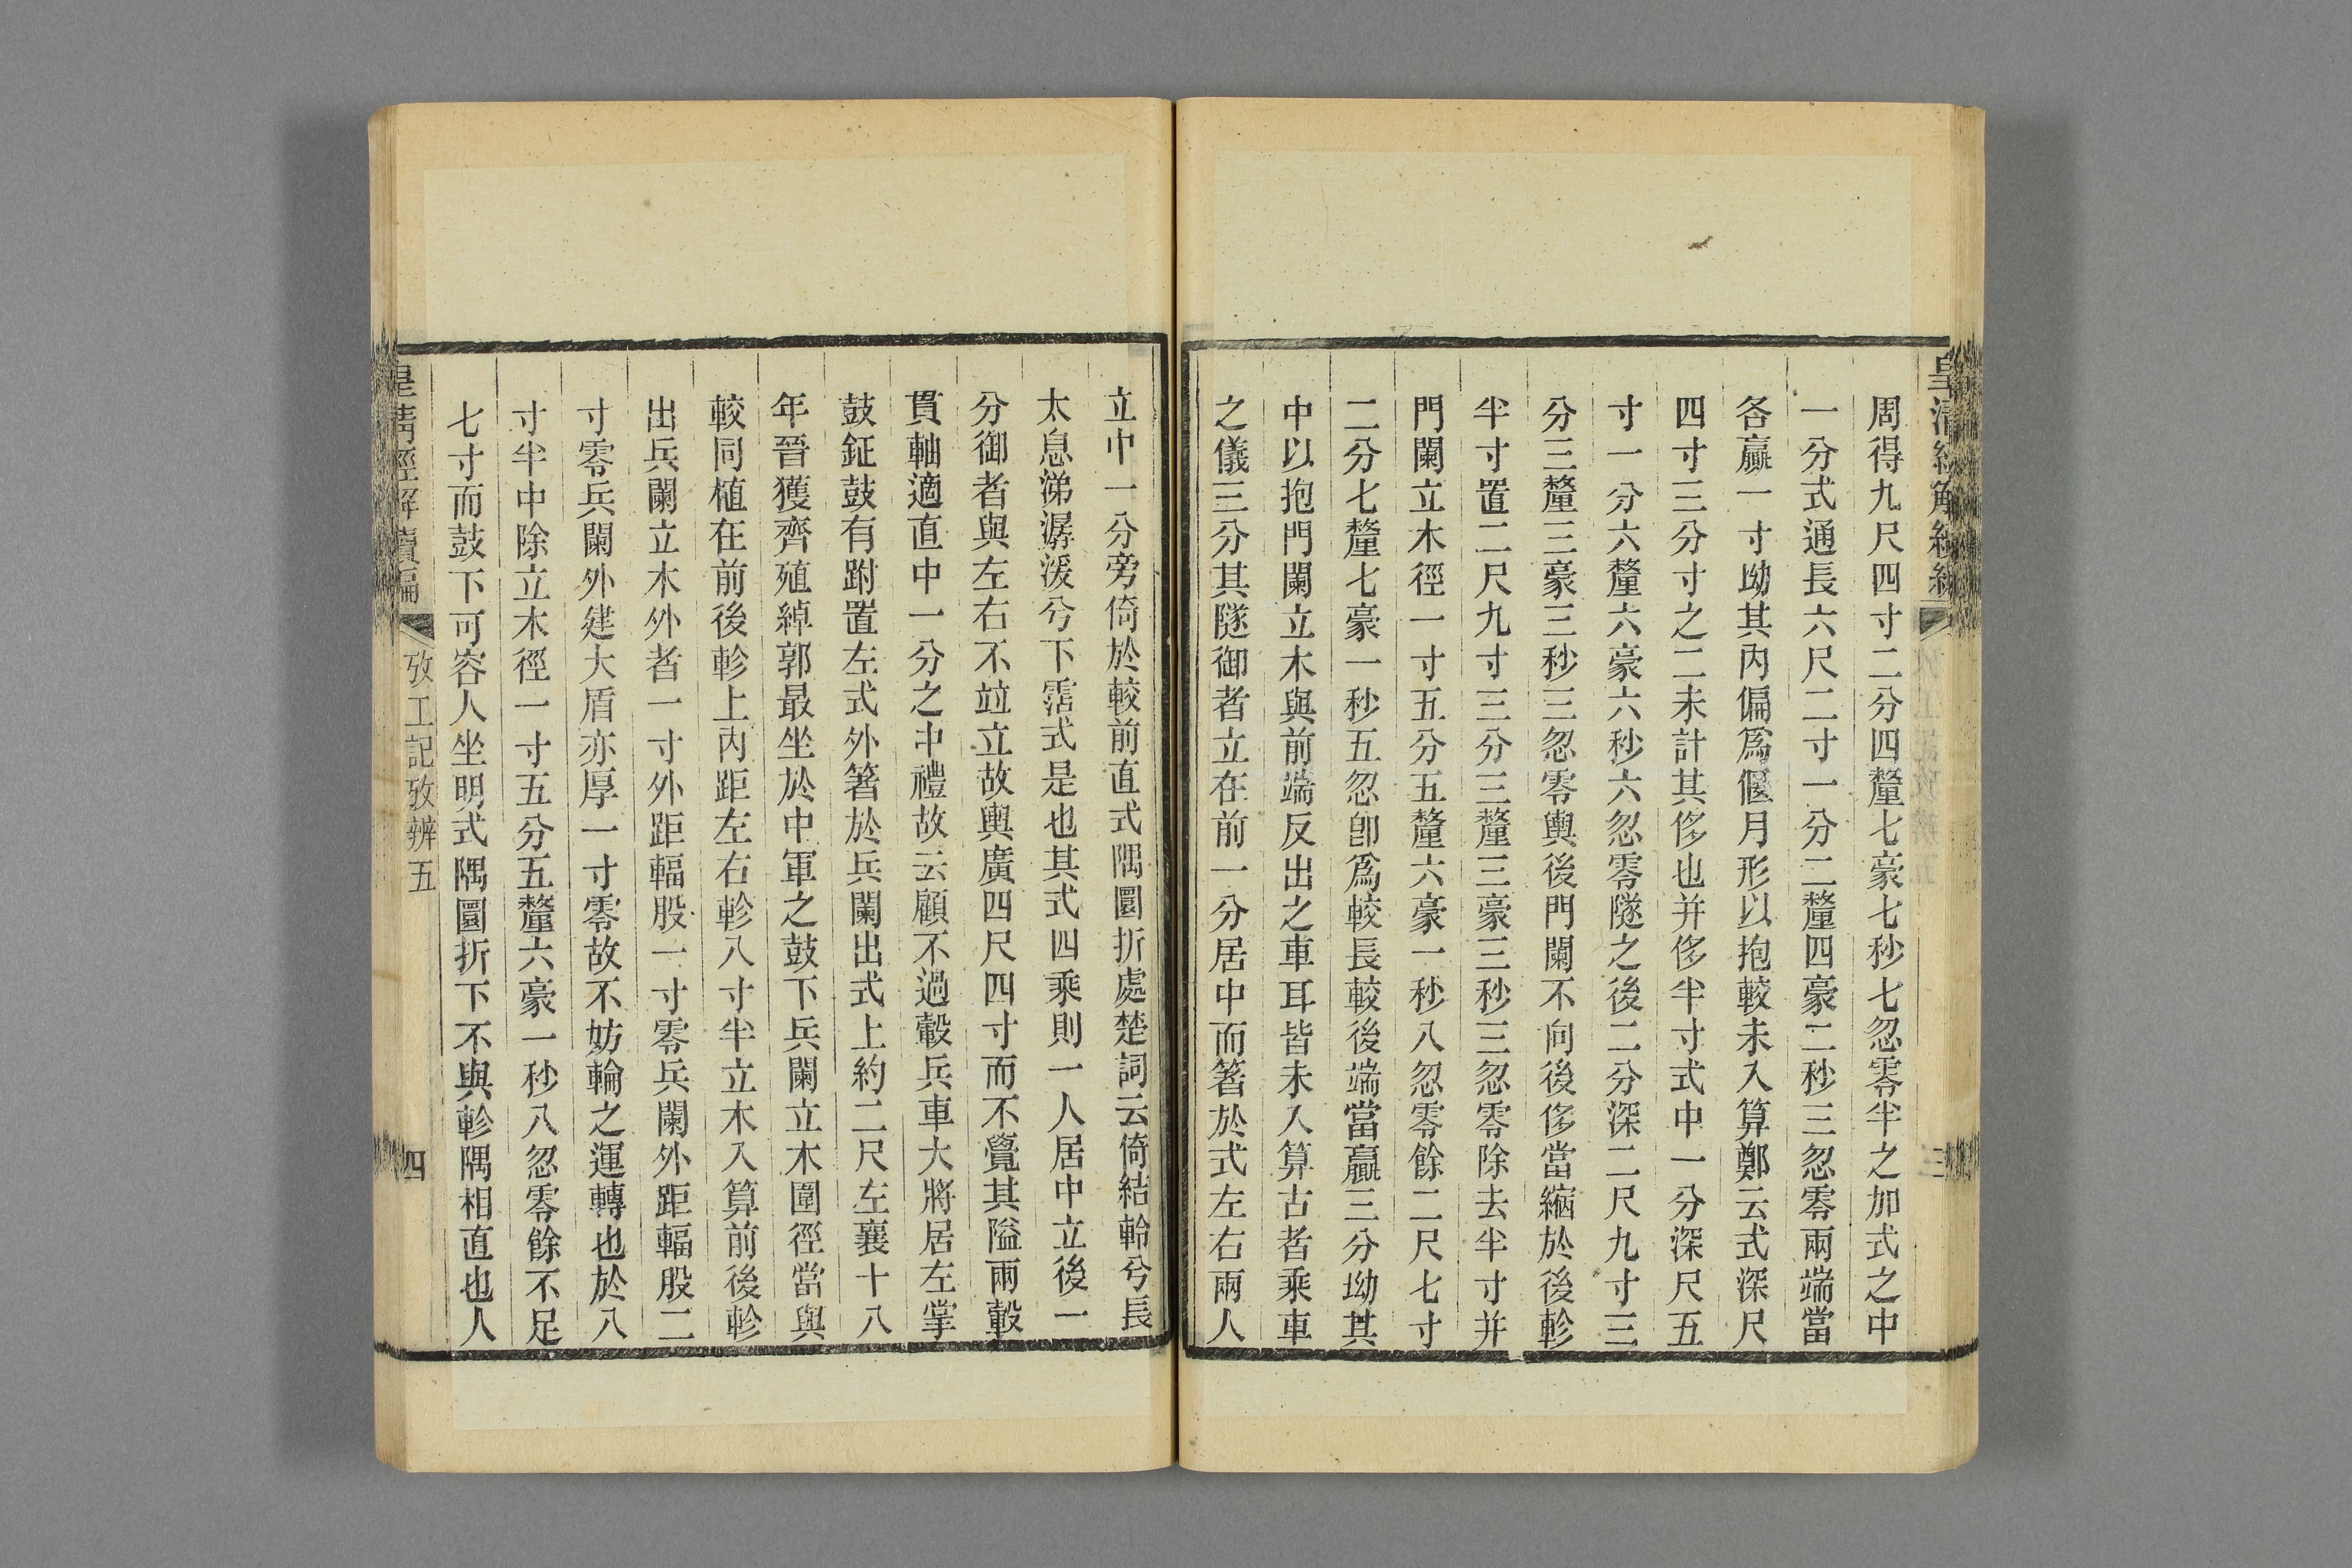 皇清經解續編
攷工記攷辨五
三
周得九尺四寸二分四釐七豪七秒七忽零半之加式之中
一分式通長六尺二寸一分二釐四豪二秒三忽零兩端當
各贏一寸坳其內偏爲偃月形以抱較未入算鄭云式深尺
四寸三分寸之二未計其侈也并侈半寸式中一分深尺五
寸一分六釐六豪六秒六忽零隧之後二分深二尺九寸三
分三釐三豪三秒三忽零輿後門闌不向後侈當縮於後軫
半寸置二尺九寸三分三釐三豪三秒三忽零除去半寸并
門闌立木徑一寸五分五釐六豪一秒八忽零餘二尺七寸
二分七釐七豪一秒五忽卽爲較長較後端當贏三分坳其
中以抱門闌立木與前端反出之車耳皆未入算古者乘車
之儀三分其隧御者立在前一分居中而箸於式左右兩人
立中一分旁倚於較前直式隅圜折處楚詞云倚結軨兮長
太息涕潺湲兮下霑式是也其式四乘則一人居中立後一
分御者與左右不竝立故輿廣四尺四寸而不覺其隘兩轂
貫軸適直中一分之中禮故云顧不過轂兵車大將居左掌
鼓鉦鼓有跗置左式外箸於兵闌出式上約二尺左襄十八
年晉獲齊殖綽郭最坐於中軍之鼓下兵闌立木圍徑當與
較同植在前後軫上內距左右軫八寸半立木入算前後軫
出兵闌立木外者一寸外距輻股一寸零兵闌外距輻股二
寸零兵闌外建大盾亦厚一寸零故不妨輪之運轉也於八
寸半中除立木徑一寸五分五釐六豪一秒八忽零餘不足
七寸而鼓下可容人坐明式隅圜折下不與軫隅相直也人
皇淸經解續編
攷工記攷辨五
四